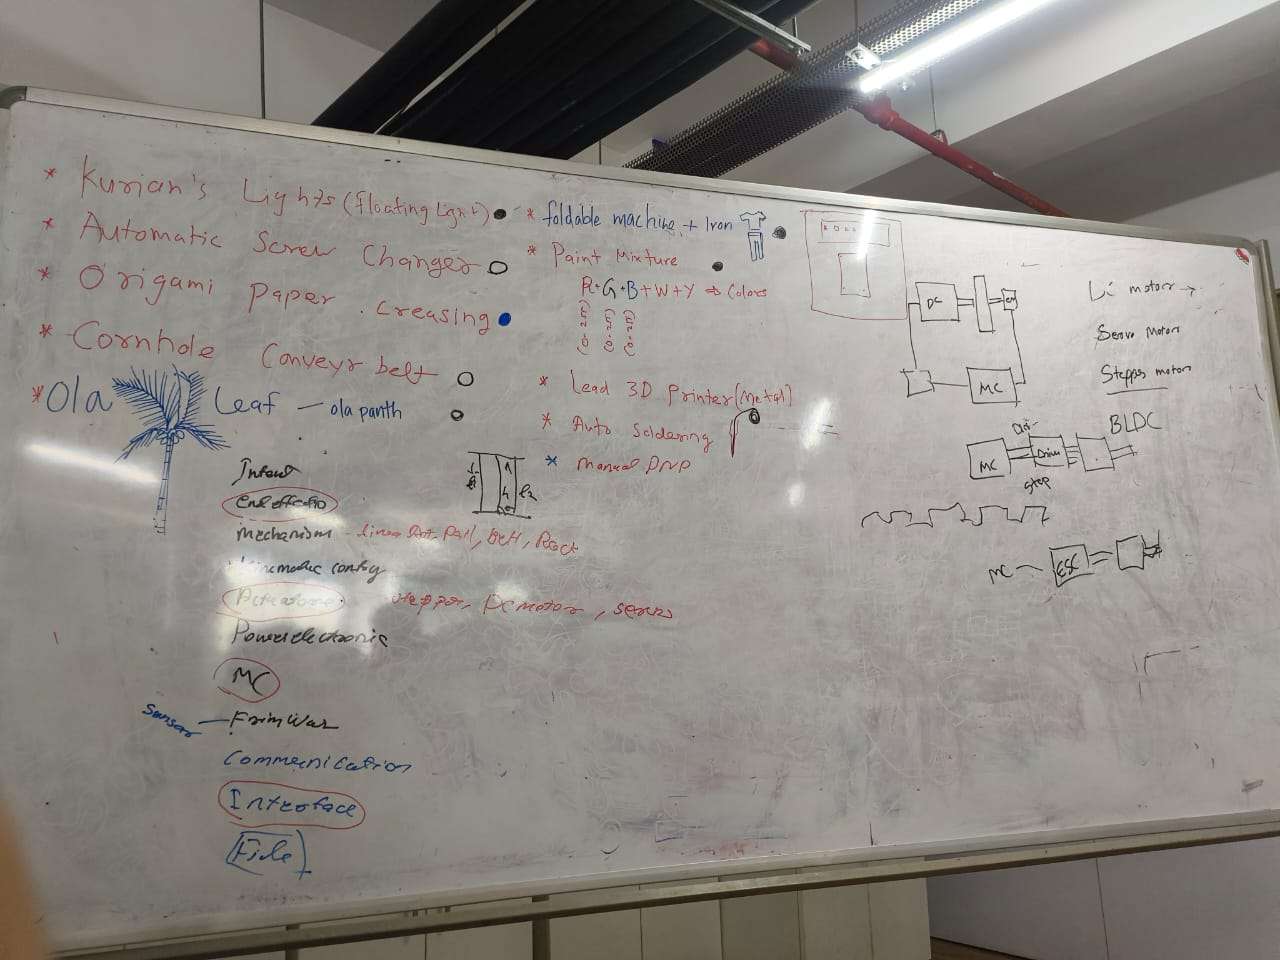 * Kurian's Lights (floating Light)
* Automatic Screw Changer
* Origami Paper creasing
* Cornhole Conveyr belt
* Ola Leaf — ola panth
* foldable machine + Iron
* Paint Mixture
R+G+B+W+Y ⇒ Colors
* Lead 3D Printer (Metal)
* Auto Soldering
* manual PNP
Intent
End effecto
mechanism - linear Rail, belt, Rack
kinematic config
Actuators stepper, DC motor, servo
Powerelectronic
MC
Sensor — FrimWar
Communication
Interface
File
DC
MC
Li motor →
Servo Motors
Stepper motors
BLDC
MC
Dir
Driver
Step
MC — ESC